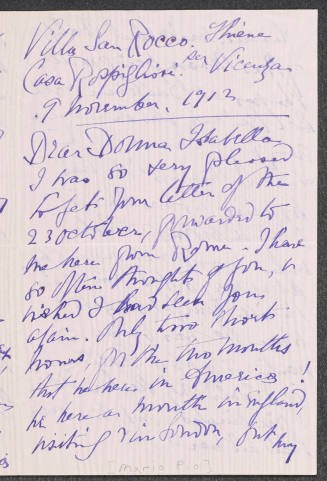 Villa San Rocco. Thiene
Casa Rospigliosi. per Vicenza
9 November. 1912
Dear Donna Isabella,
I was so very pleased
to get your letter of the
23 October, forwarded to
me here from Rome. I have
so often thought of you, &
wished I had seen you
again. Only two short
hours, for the two months
that we were in America!
we were a month in England,
visiting & in London, but my
[Mario P. o]